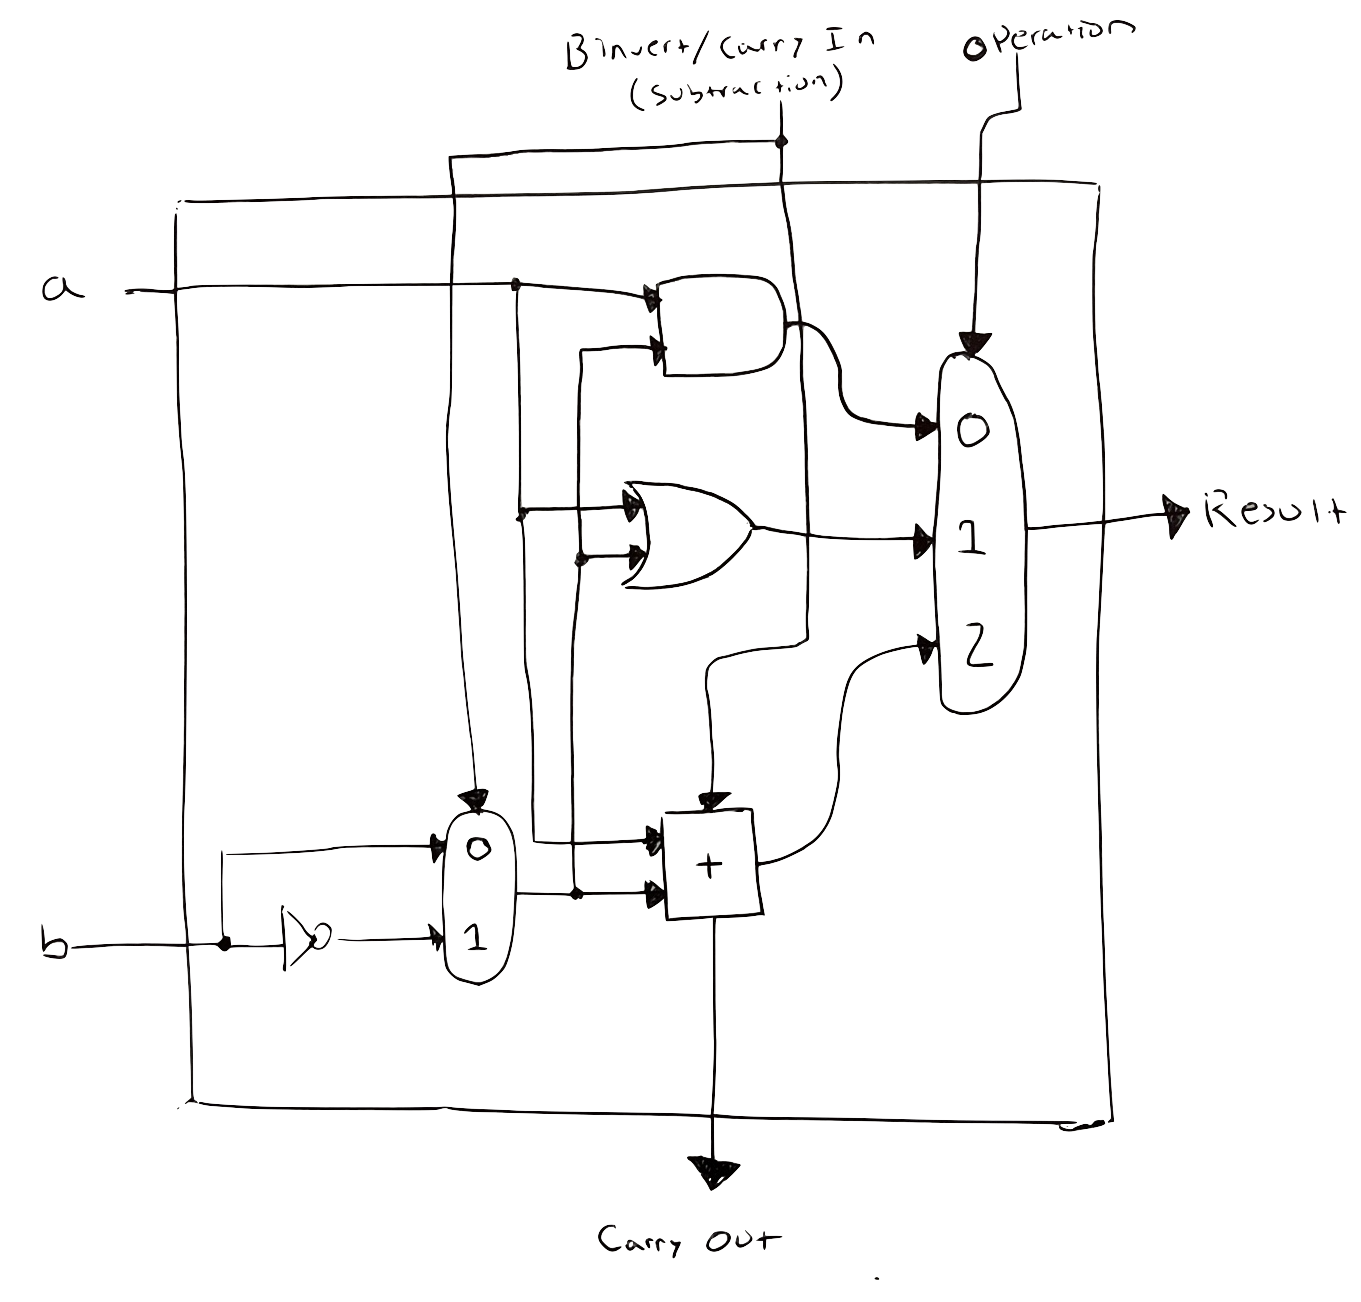 Binvert/Carry In
(Subtraction)
Operation
a
0
1
Result
2
+
0
b
1
Carry Out